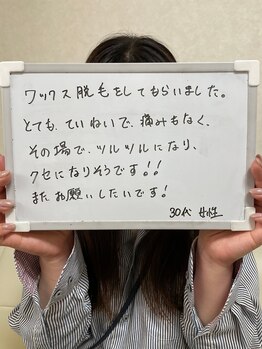 ワックス脱毛をしてもらいました。
とても、ていねいで、痛みもなく、
その場で、ツルツルになり、
クセになりそうです!!
またお願いしたいです!
30代 女性